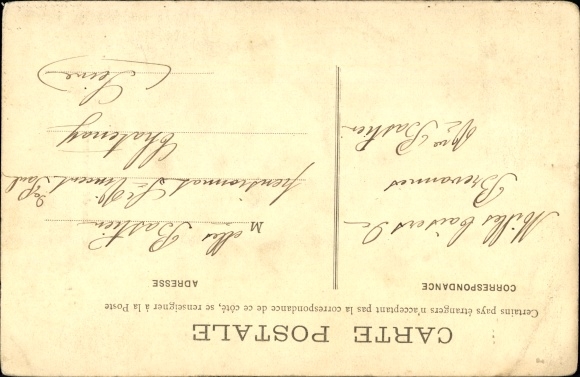 CARTE POSTALE
Certains pays étrangers n'acceptant pas la correspondance de ce côté, se renseigner à la Poste
CORRESPONDANCE
Milles baisers de
Brevannes
Bastien
ADRESSE
Melles Bastien
pensionnat St Vincent Paul
Chatenay
(Seine)